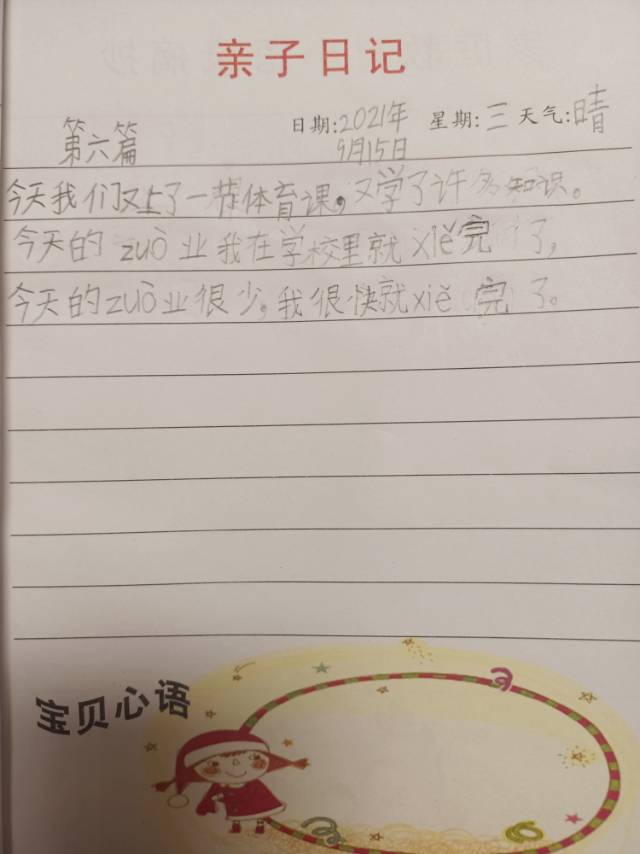 亲子日记
第六篇 日期:2021年 星期:三 天气:晴
9月15日
今天我们又上了一节体育课,又学了许多知识。
今天的zuò业我在学校里就xiě完了,
今天的zuò业很少。我很快就xiě完了。
宝贝心语